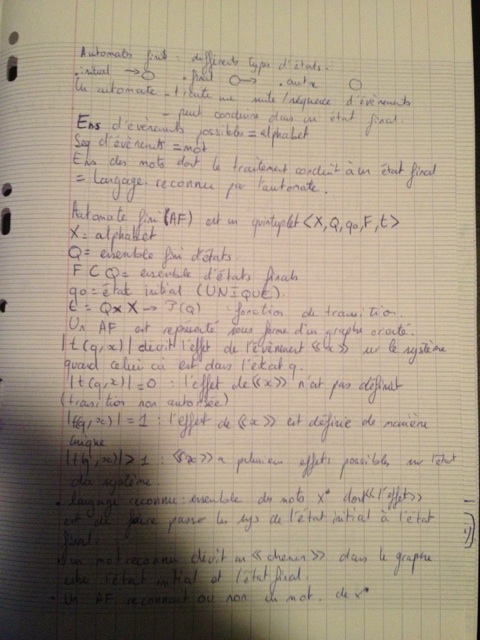 Automates finis : différents types d'états.
. initial → . final → . autre
Un automate - traite une suite/séquence d'évènements
- peut conduire dans un état final.
Ens d'évènements possibles = alphabet
Seq d'évènements = mot
Ens des mots dont le traitement conduit à un état final
= Langage reconnu par l'automate.
Automate fini (AF) est un quintuplet <X, Q, q0, F, t>
X = alphabet
Q = ensemble fini d'états.
F ⊂ Q = ensemble d'états finals
q0 = état initial (UNIQUE).
t = Q × X → P(Q) fonction de transition.
Un AF est représenté sous forme d'un graphe orienté.
|t(q,x)| décrit l'effet de l'évènement «x» sur le système
quand celui ci est dans l'état q.
|t(q,x)| = 0 : l'effet de «x» n'est pas définit
(transition non autorisée)
|t(q,x)| = 1 : l'effet de «x» est définie de manière
unique
|t(q,x)| > 1 : «x» a plusieurs effets possibles sur l'état
du système
. langage reconnu : ensemble des mots X* dont «l'effet»
est de faire passer les sys de l'état initial à l'état
final.
. un mot reconnu décrit un «chemin» dans le graphe
entre l'état initial et l'état final.
. Un AF reconnait ou non un mot. de X*